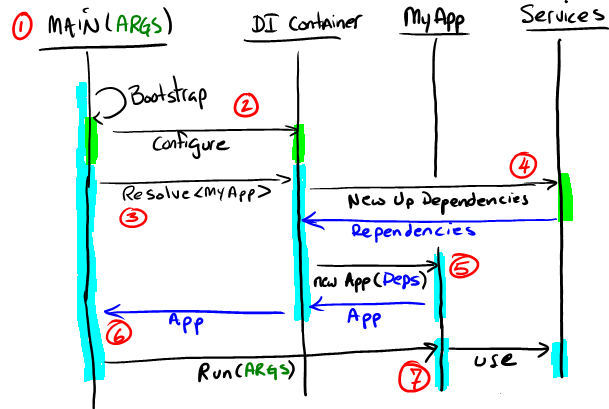 ① MAIN(ARGS) DI Container MyApp Services
Bootstrap
②
Configure
④
Resolve<MyApp>
New Up Dependencies
③
Dependencies
⑤
new App(Deps)
App
App
⑥
Run(ARGS)
⑦
use